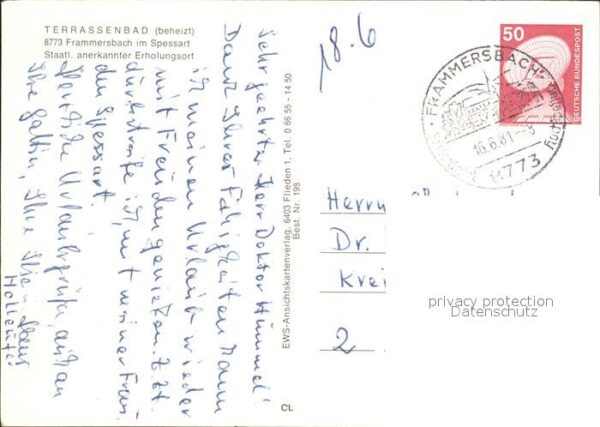 TERRASSENBAD (beheizt)
8773 Frammersbach im Spessart
Staatl. anerkannter Erholungsort
Sehr geehrter Herr Doktor Hummel!
Dank Ihrer Fähigkeiten kann
ich meinen Urlaub wieder
mit Freuden genießen. Z. Zt.
durchstreife ich mit meiner Frau
den Spessart.
Herzliche Urlaubsgrüße, auch an
Ihre Gattin, Ihr
EWS-Ansichtskartenverlag, 6403 Flieden 1, Tel. 0 66 55 - 14 50
Best. Nr. 198
CL
18.6
50
DEUTSCHE BUNDESPOST
FRAMMERSBACH
16.6.81
8773
Herrn
Dr.
Krei
2
privacy protection
Datenschutz